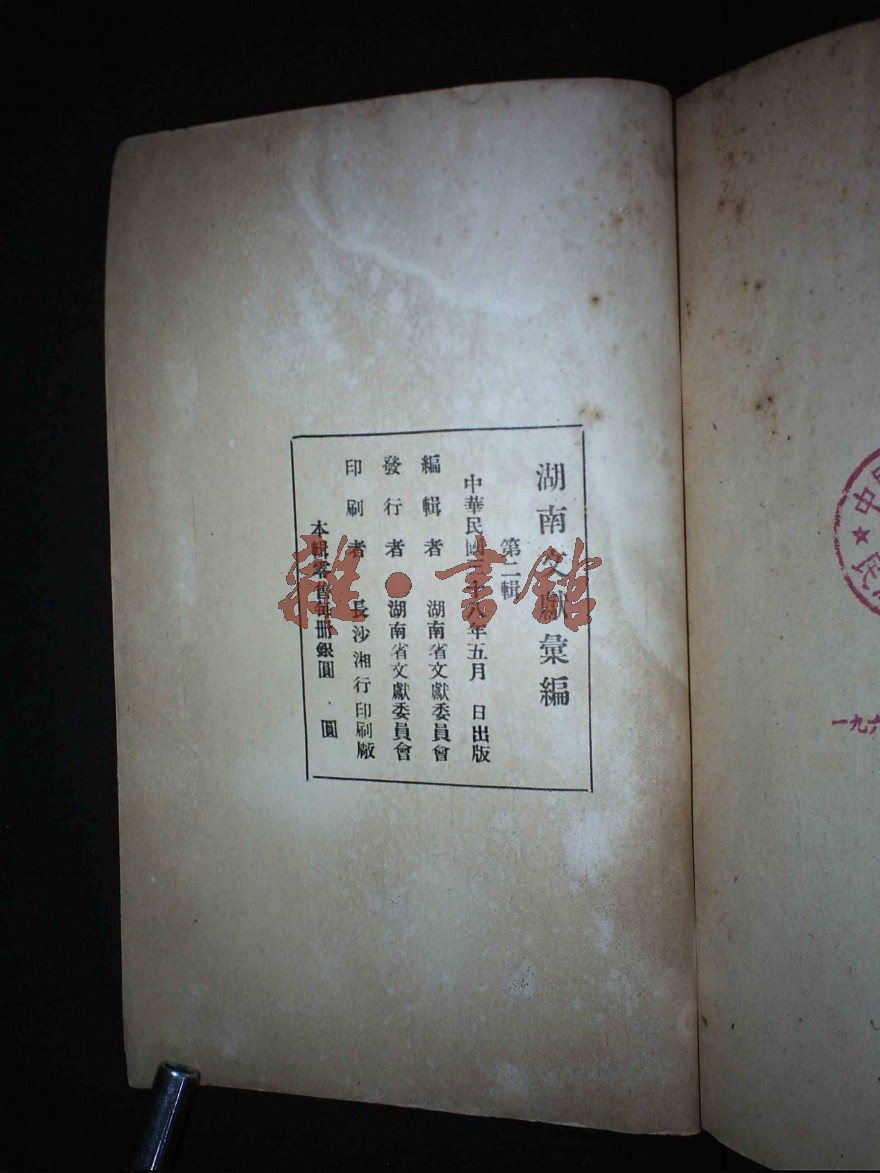 湖南文獻彙編
第二輯
中華民國三十八年五月 日出版
編輯者 湖南省文獻委員會
發行者 湖南省文獻委員會
印刷者 長沙湘行印刷廠
本輯零售每冊銀圓 · 圓
雜·書館
一九六